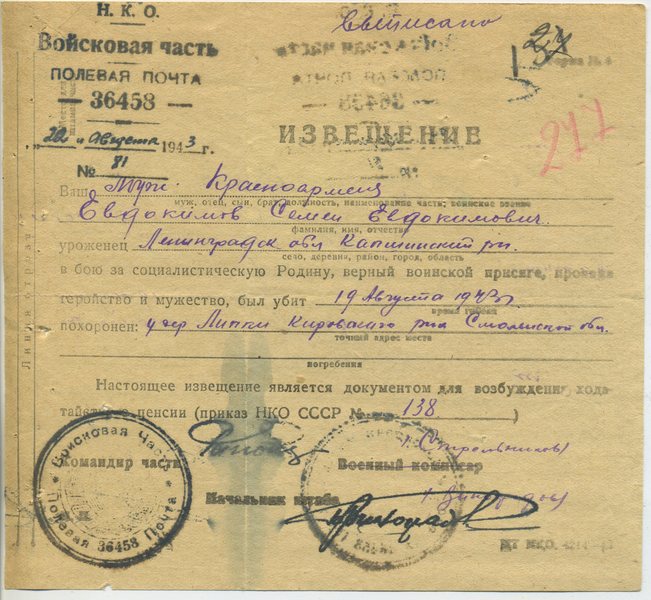 Н. К. О.
Войсковая часть
ПОЛЕВАЯ ПОЧТА
— 36458 —
22 " Августа 1943 г.
№ 81
277
ИЗВЕЩЕНИЕ
Ваш Муж. Красноармеец
муж, отец, сын, брат, должность, наименование части, воинское звание
Евдокимов Семен Евдокимович.
фамилия, имя, отчество
уроженец Ленинградск обл Капшинский рн.
село, деревня, район, город, область
в бою за социалистическую Родину, верный воинской присяге, проявив
геройство и мужество, был убит 19 Августа 1943г
время гибели
похоронен: у дер Липки Кировского рна Смоленской обл.
точный адрес места
погребения
Настоящее извещение является документом для возбуждения хода-
тайства о пенсии (приказ НКО СССР № 138 )
Командир части
Военный комиссар
Стрельников
Начальник штаба
Войсковая Часть
Полевая Почта
36458